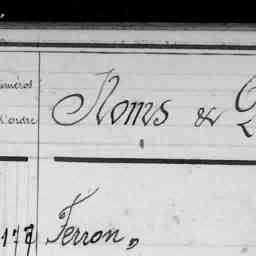 numéros
d'ordre
Noms &
177 Ferron,